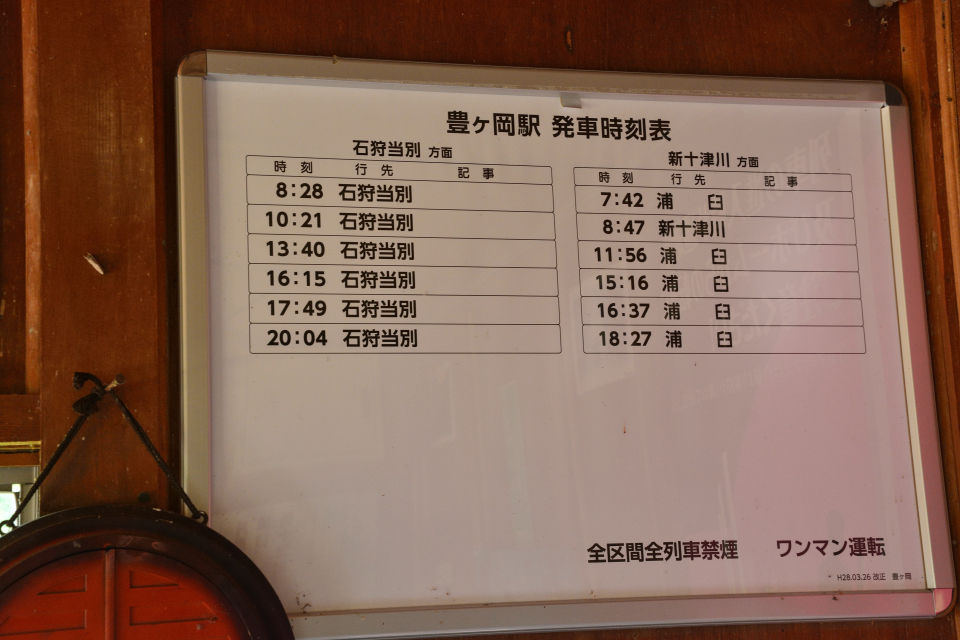 豊ヶ岡駅 発車時刻表
石狩当別 方面
時 刻 行 先 記 事
8:28 石狩当別
10:21 石狩当別
13:40 石狩当別
16:15 石狩当別
17:49 石狩当別
20:04 石狩当別
新十津川 方面
時 刻 行 先 記 事
7:42 浦 臼
8:47 新十津川
11:56 浦 臼
15:16 浦 臼
16:37 浦 臼
18:27 浦 臼
全区間全列車禁煙 ワンマン運転
H28.03.26 改正 豊ヶ岡